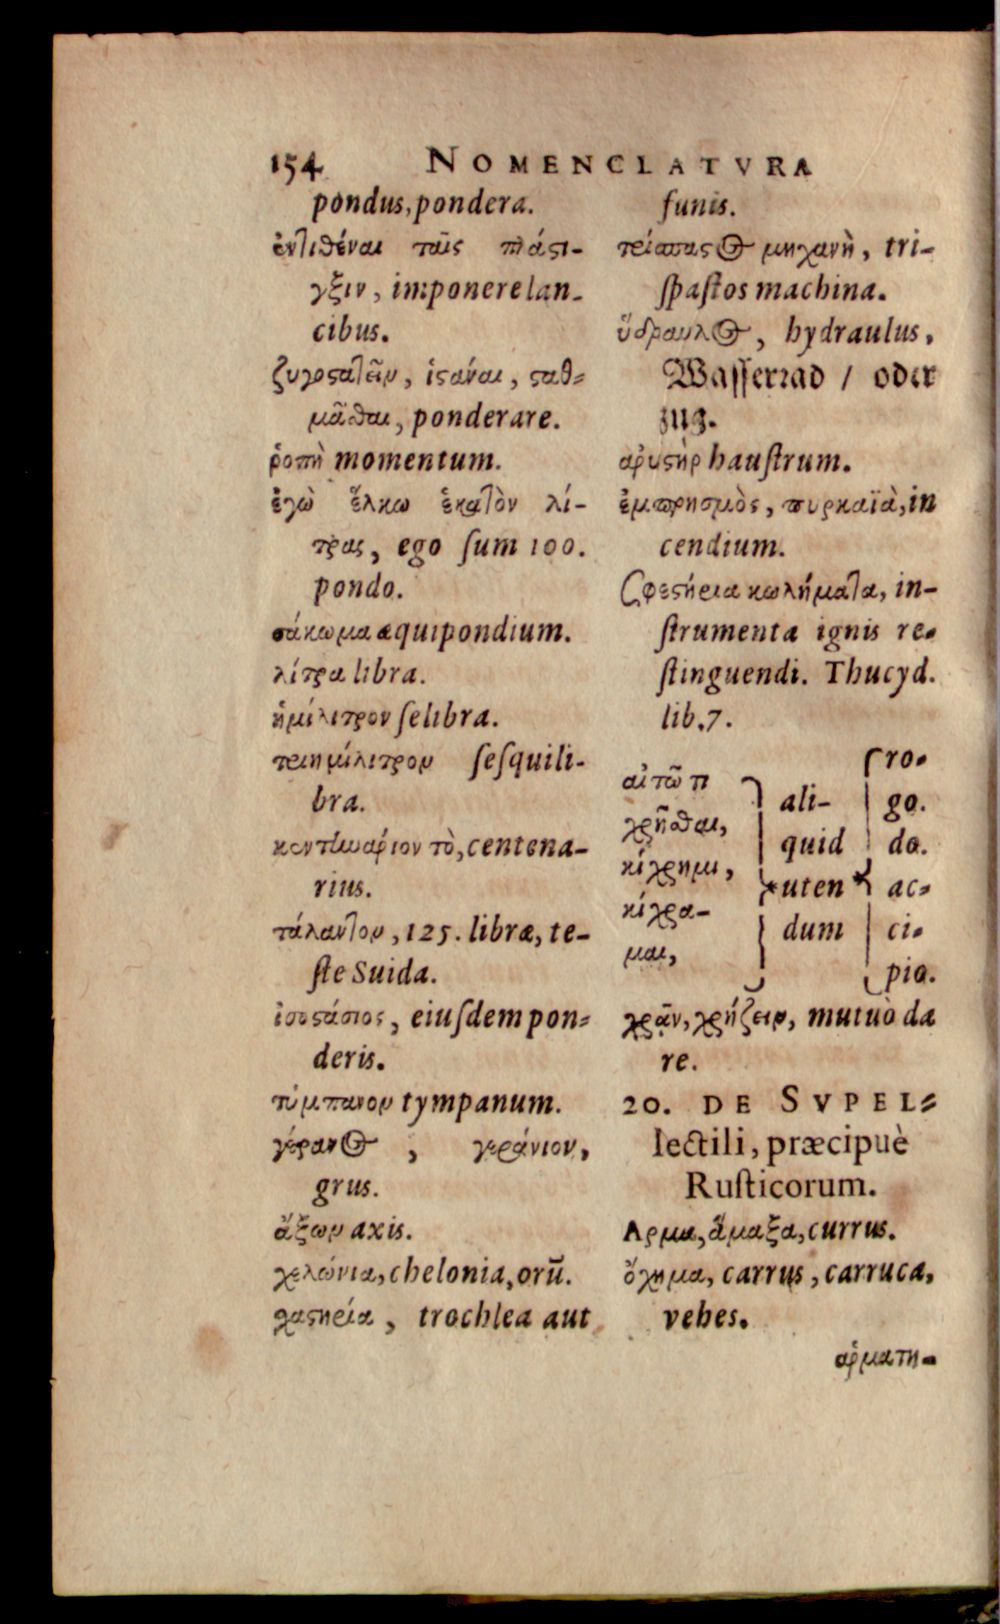 154 NOMENCLATVRA
pondus, pondera.
ἐντιθέναι ταῖς πλάστι-
γξιν, imponere lan-
cibus.
ζυγοστατεῖν, ἱστάναι, σταθ-
μᾶσθαι, ponderare.
ῥοπὴ momentum.
ἐγὼ ἕλκω ἑκατὸν λί-
τρας, ego ſum 100.
pondo.
σάκωμα æquipondium.
λίτρα libra.
ἡμίλιτρον ſelibra.
τριημίλιτρον ſeſquili-
bra.
κεντηνάριον τὸ, centena-
rius.
τάλαντον, 125. libræ, te-
ſte Suida.
ἰσοστάσιος, eiuſdem pon-
deris.
τύμπανον tympanum.
γέρανος, γεράνιον,
grus.
ἄξων axis.
χελώνια, chelonia, orū.
χαστηρία, trochlea aut
funis.
τρίσπαστος μηχανὴ, tri-
ſpaſtos machina.
ὕδραυλος, hydraulus,
Waſſerrad / oder
zug.
ἀρυστὴρ hauſtrum.
ἐμπρησμὸς, πυρκαϊὰ, in
cendium.
σβεστήρια κωλήματα, in-
ſtrumenta ignis re-
ſtinguendi. Thucyd.
lib. 7.
αἰτῶ π
χρῆσθαι,
κίχρημι,
κίχρα-
μαι,
ali-
quid
uten
dum
ro-
go.
do.
ac-
ci-
pio.
χρᾶν, χρήζειν, mutuò da
re.
20. DE SVPEL-
lectili, præcipuè
Ruſticorum.
Αρμα, ἅμαξα, currus.
ὄχημα, carrus, carruca,
vehes.
ἁρματη-